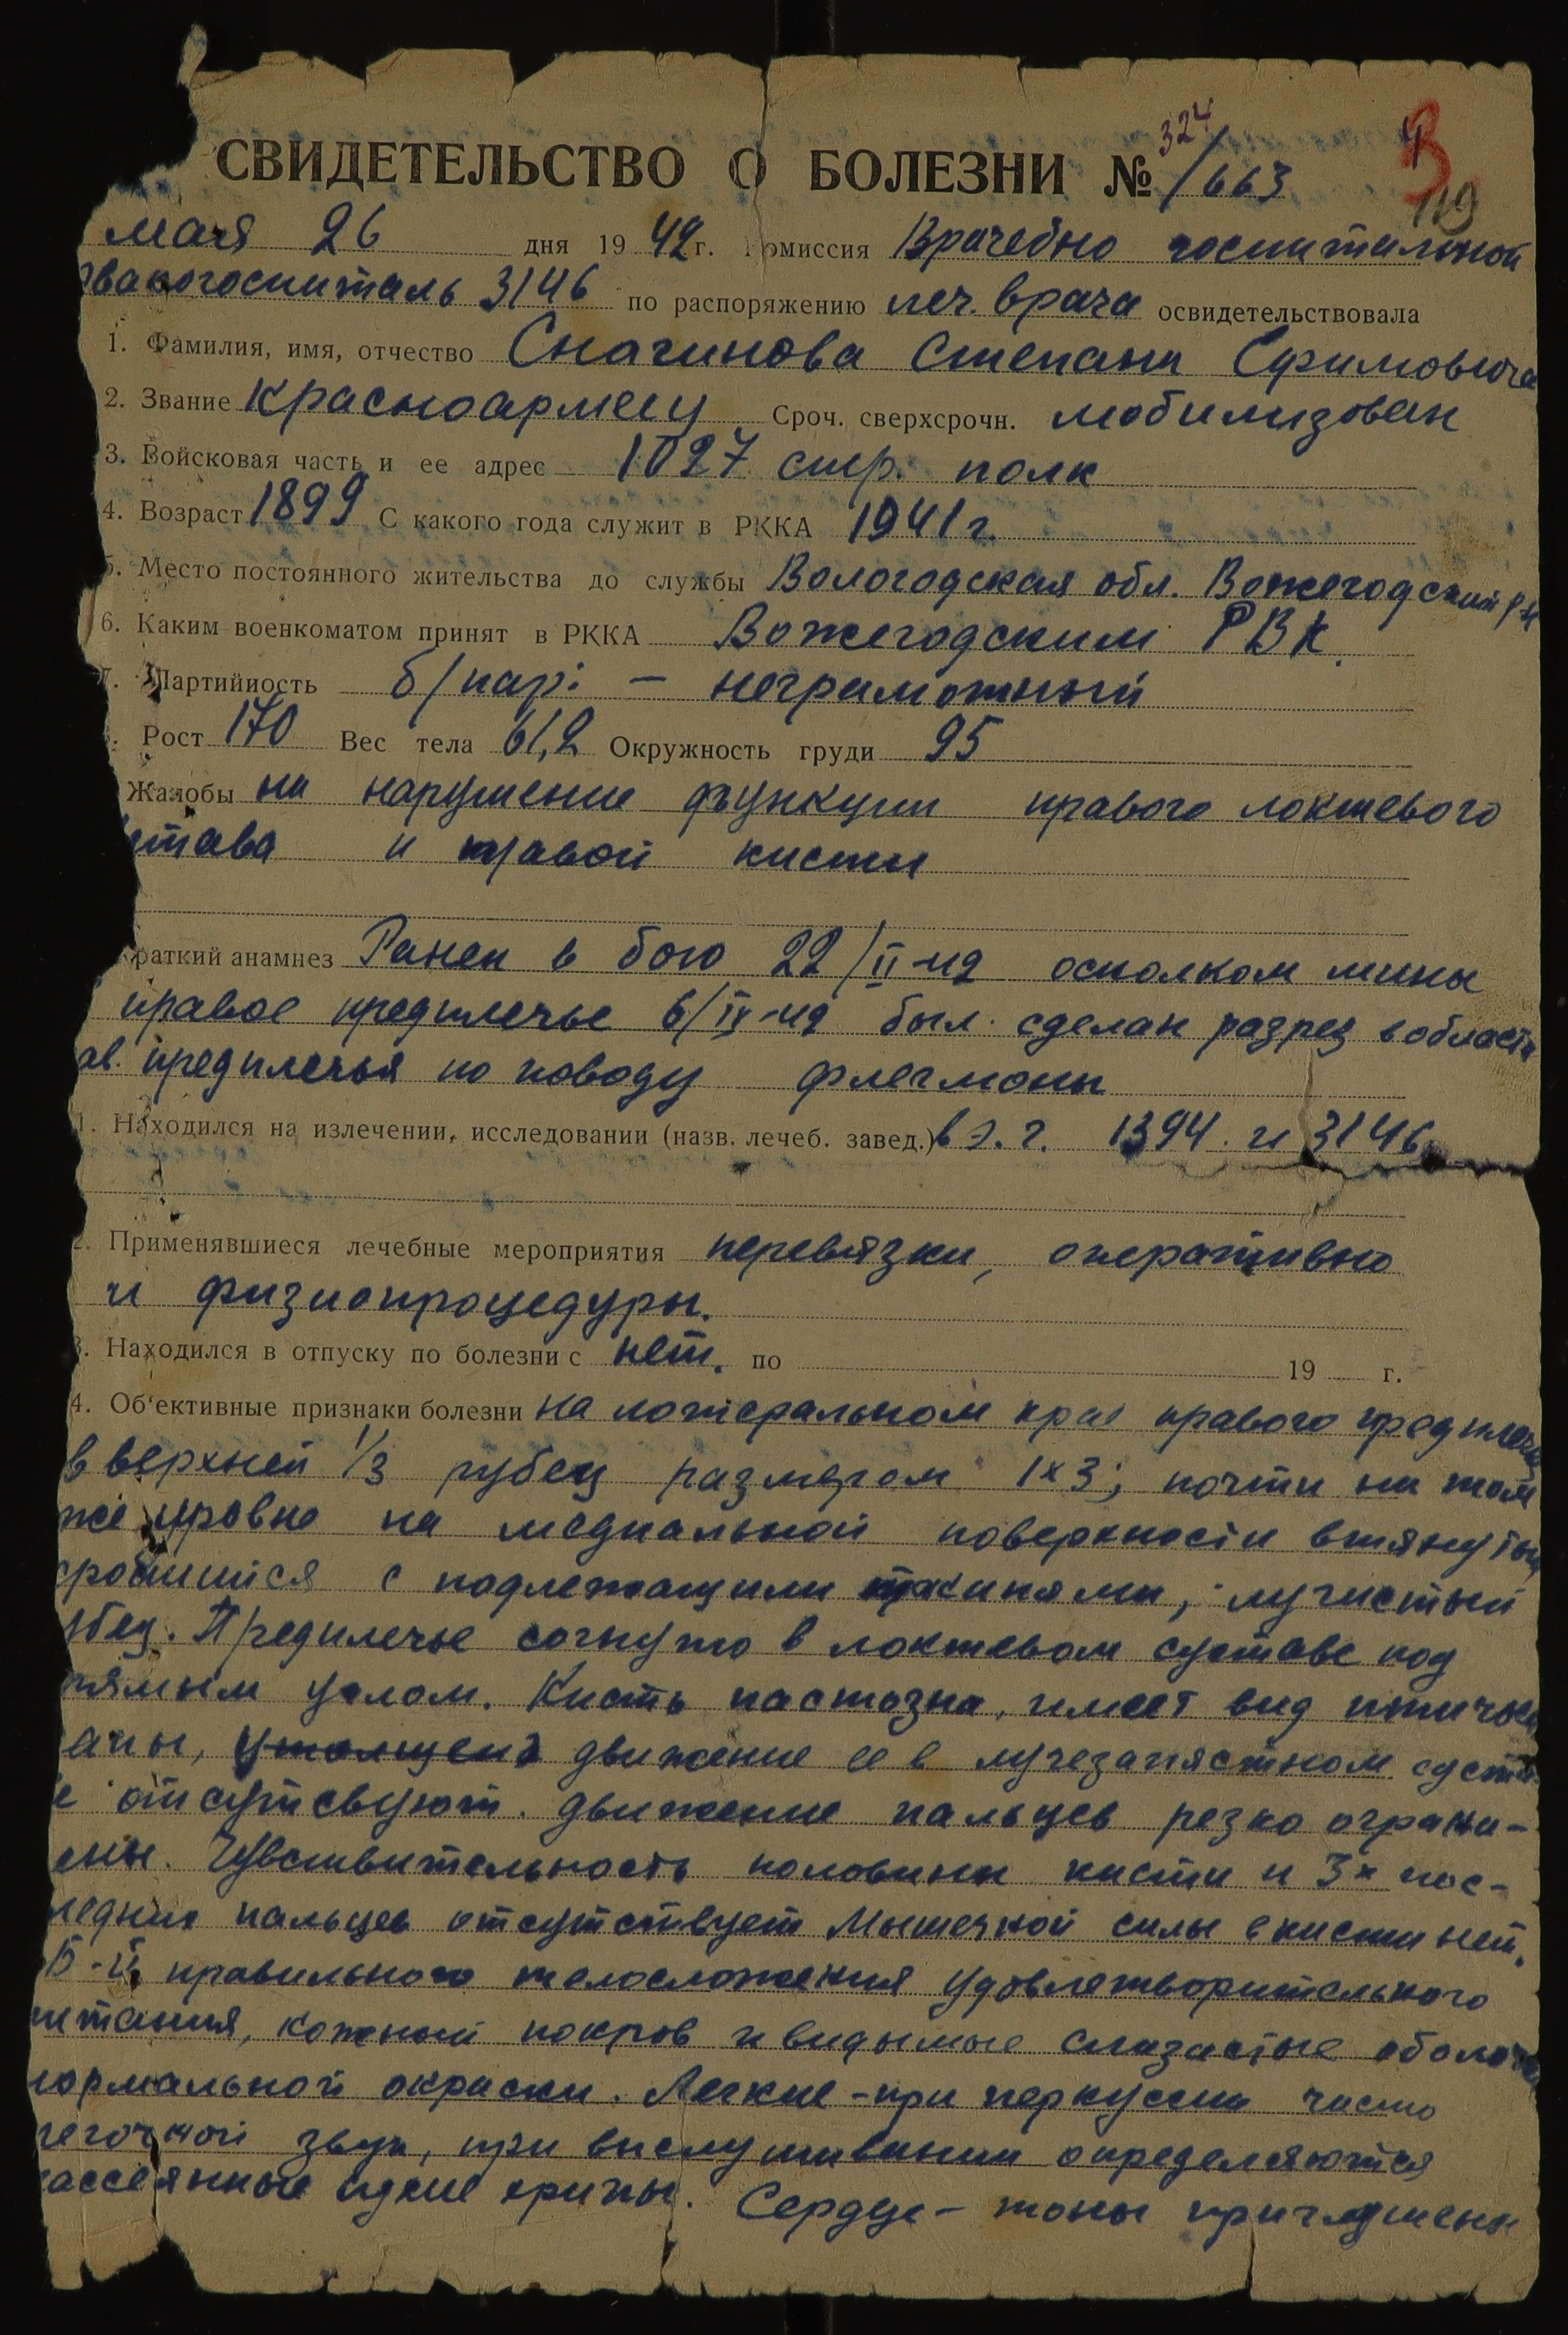 324
3
119
СВИДЕТЕЛЬСТВО О БОЛЕЗНИ № /663
мая 26 дня 1942 г. Комиссия Врачебно госпитальной
эвакогоспиталь 3146 по распоряжению леч. врача освидетельствовала
1. Фамилия, имя, отчество Сначинова Степана Ефимовича
2. Звание Красноармеец Сроч. сверхсрочн. мобилизован
3. Войсковая часть и ее адрес 1027 стр. полк
4. Возраст 1899 С какого года служит в РККА 1941 г.
5. Место постоянного жительства до службы Вологодская обл. Вожегодский р-н
6. Каким военкоматом принят в РККА Вожегодским РВК.
7. Партийность б/парт – неграмотный
Рост 170 Вес тела 61,2 Окружность груди 95
Жалобы на нарушение функции правого локтевого
става и правой кисти
раткий анамнез Ранен в бою 22/II-42 осколком мины
правое предплечье 6/IV-42 был сделан разрез в области
ав. предплечья по поводу флегмоны
1. Находился на излечении, исследовании (назв. лечеб. завед.) в э. г. 1394 и 3146
2. Применявшиеся лечебные мероприятия перевязки, оперативно
и физиопроцедуры.
3. Находился в отпуску по болезни с нет. по 19 г.
4. Об‘ективные признаки болезни на латеральном крае правого предплечья
в верхней 1/3 рубец размером 1х3; почти на том
же уровне на медиальной поверхности втянутый
сросшийся с подлежащими тканями, лучистый
убец. Предплечье согнуто в локтевом суставе под
рямым углом. Кисть пастозна, имеет вид птичьей
апы, утолщена движение ее в лучезапястном суста-
е отсутсвуют. движение пальцев резко ограни-
ены. Чувствительность половины кисти и 3х пос-
ледних пальцев отсутствует Мышечной силы в кисти нет.
Б-й правильного телосложения удовлетворительного
итания, кожный покров и видимые слизистые оболочки
нормальной окраски. Легкие – при перкуссии чисто
легочной звук, при выслушивании определяются
рассеянные сухие хрипы. Сердце – тоны приглушены